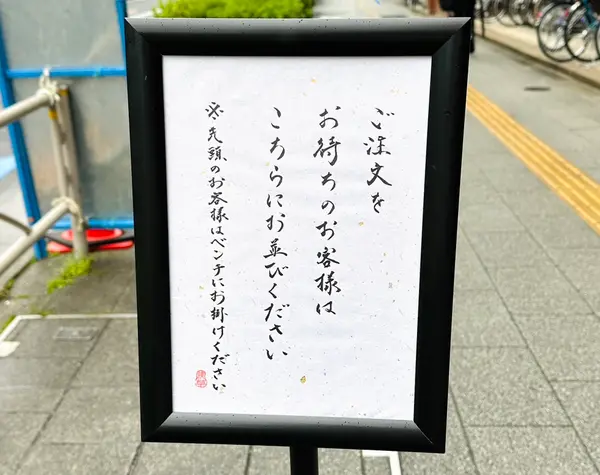 ご注文を
お待ちのお客様は
こちらにお並びください
※先頭のお客様はベンチにお掛けください